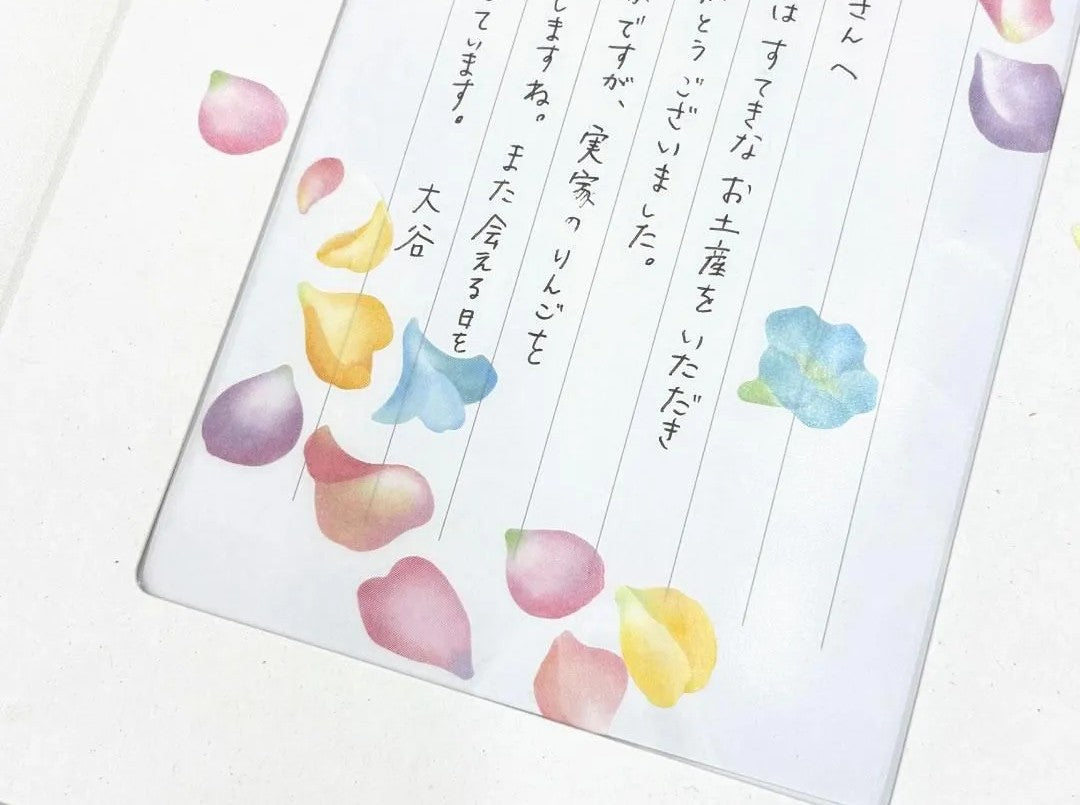 さんへ
は すてきな お土産を いただき
とう ございました。
ですが、 実家の りんごを
しますね。 また 会える 日を
ています。
大谷